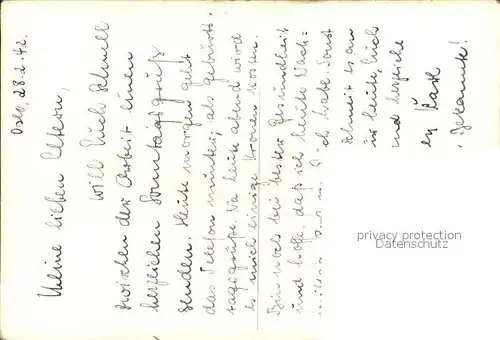 Oslo, 28.2.42.
Meine lieben Eltern,
will Euch schnell
zwischen der Arbeit einen
herzlichen Sonntagsgruß
senden. Heute morgen geht
das Telefon munter, als Geburts-
tagsgrüße. Na heute abend wird
es mich einige Kronen kosten.
Bin noch bei bester Gesundheit
und hoffe, daß ich heute Nach-
ich habe. Sonst
schneit es an
heute. Euch
und herzliche
Karl
privacy protection
Datenschutz